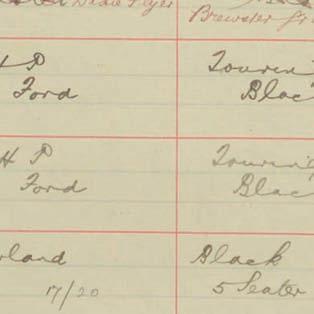 Dixie Flyer
Brewster Gr
H P
Ford
Tourin
Blac
H P
Ford
Tourin
Blac
rland
17/20
Black
5 Seater